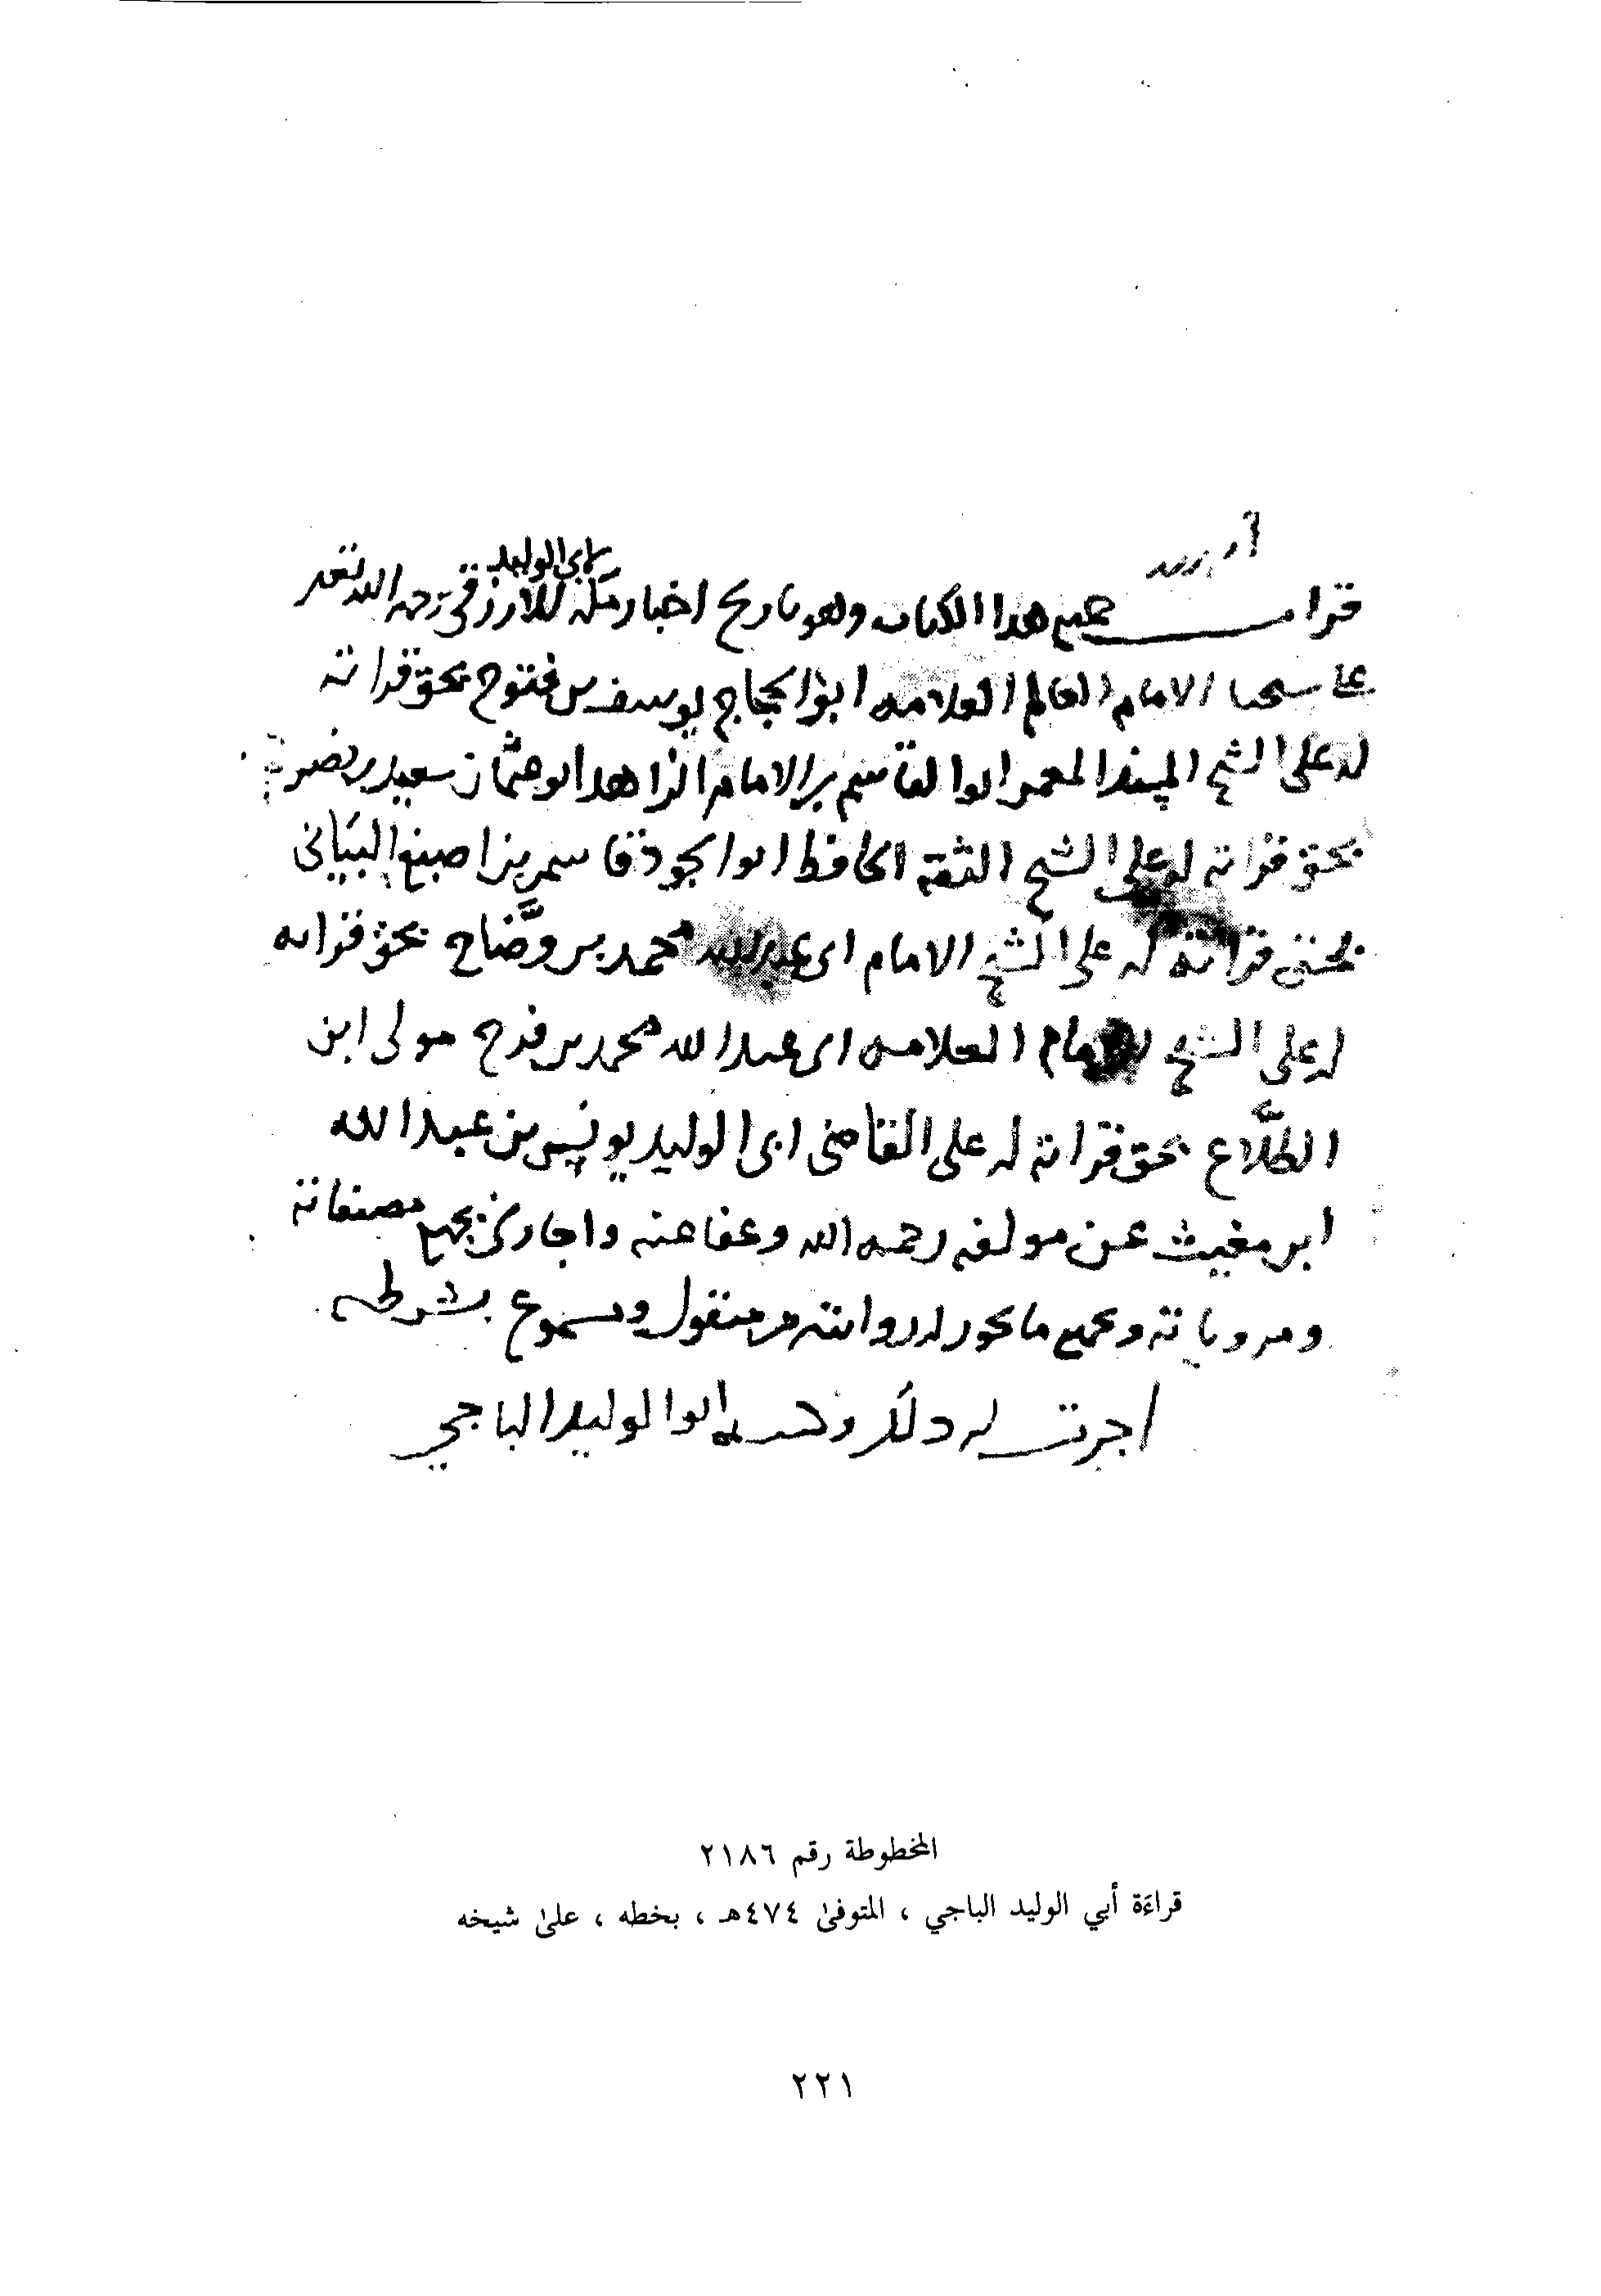 لابي الوليد
قرات جميع هذا الكتاب وهو تاريخ اخبار مكه للارزقي رحمه الله تعد
على سحنا الامام العالم العلامه ابو الحجاج يوسف بن فتوح بحق قراته
له على الشيخ المسند المعمر ابو القاسم بن الامام الزاهد ابو عثمان سعيد بن نصر
بحق قراته له على الشيخ الثقة الحافظ ابو الجود قاسم بن اصبغ البيانى
بحق قراته له على الشيخ الامام ابى عبد الله محمد بن وضَّاح بحق قراته
له على الشيخ الامام العلامه ابى عبد الله محمد بن فرج مولى ابن
الطلَّاع بحق قراته له على القاضى ابى الوليد يونس بن عبد الله
ابن مغيث عن مولفه رحمه الله وعفا عنه واجازنى بجميع مصنفاته
ومروياته وبجميع ما يجوز له روايته من منقول ومسموع بشرطه
اجزت له ذلك وكتبه ابو الوليد الباجي
المخطوطة رقم ٢١٨٦
قراءة أبي الوليد الباجي ، المتوفىٰ ٤٧٤هـ ، بخطه ، علىٰ شيخه
٢٢١